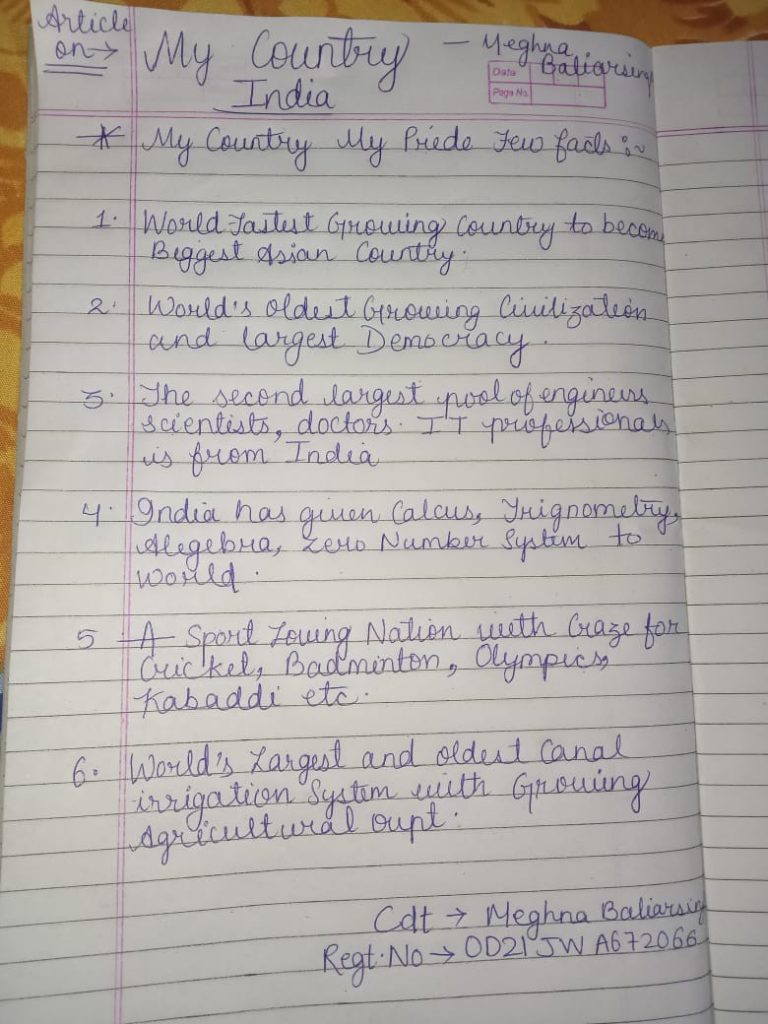 Article
on→ My Country — Meghna
Baliarsing
India
Date
Page No.
* My Country My Priede Few facts :~
1. World Fastest Growing Country to become
Beggest Asian Country.
2. World's oldest Growing Civilization
and largest Democracy.
3. The second largest pool of engineers
scientists, doctors. IT professionals
is from India
4. India has given Calcus, Trignometry,
Alegebra, zero Number System to
World.
5 A Sport Loving Nation with Craze for
Cricket, Badminton, Olympics,
Kabaddi etc.
6. World's Largest and oldest Canal
irrigation System with Growing
Agricultural oupt.
Cdt → Meghna Baliarsing
Regt.No → OD21JWA672066